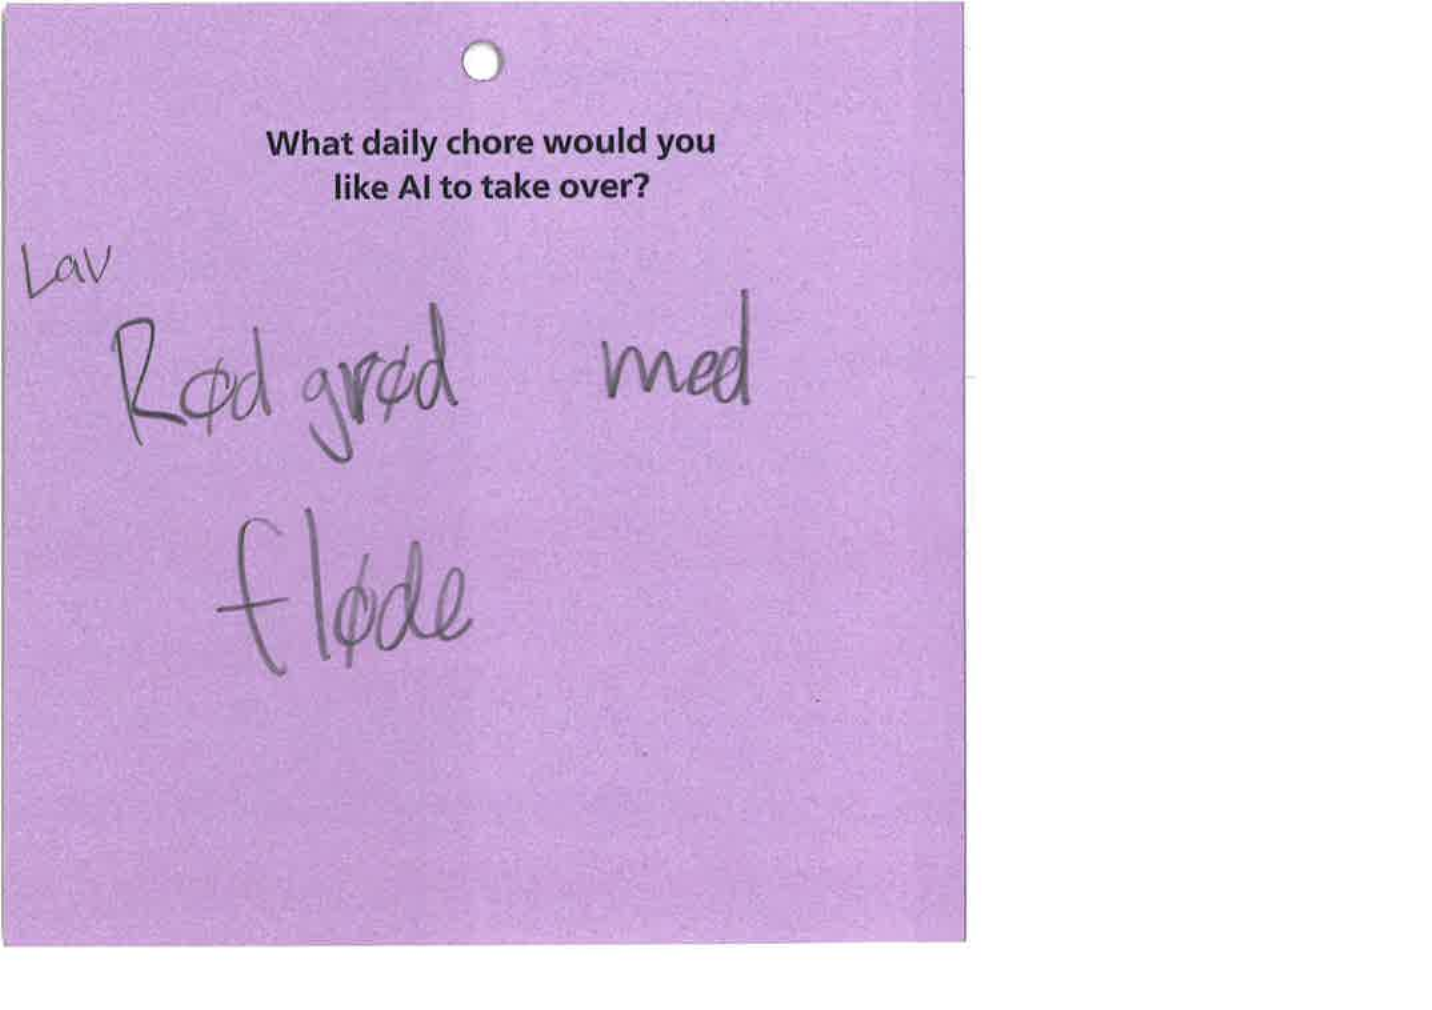 What daily chore would you
like AI to take over?
Lav
Rød grød med
fløde